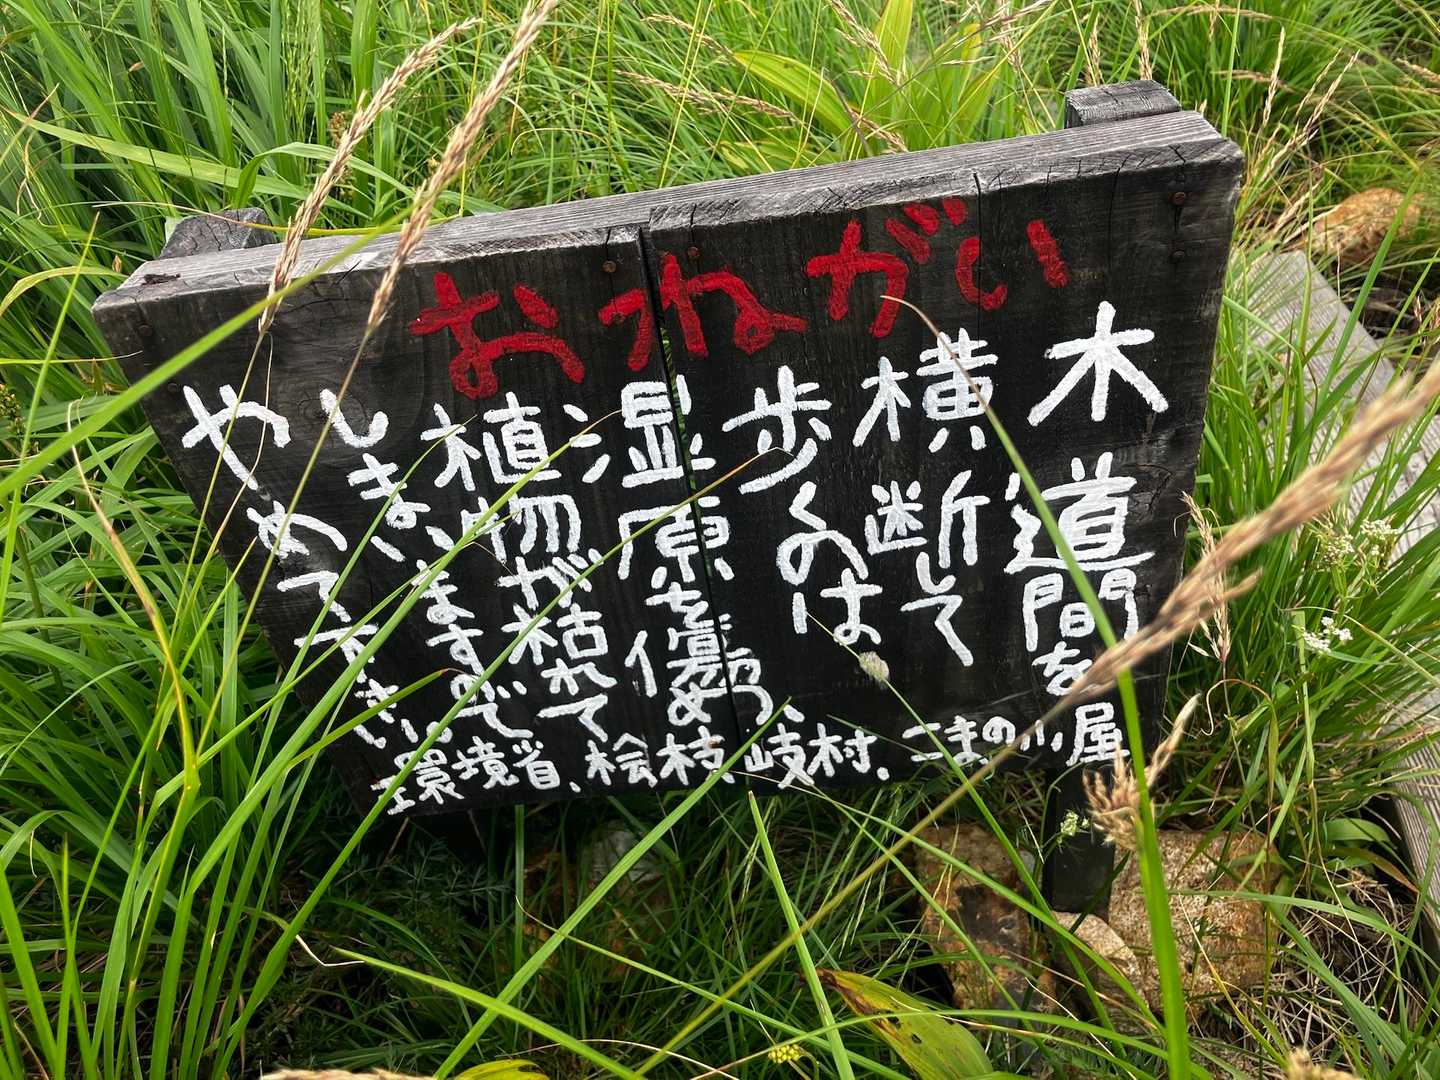 おねがい
木道間を
横断して
歩くのは
湿原を傷めつ、
植物が枯れて
しまいますので
やめて下さい。
環境省、桧枝岐村、こまの小屋